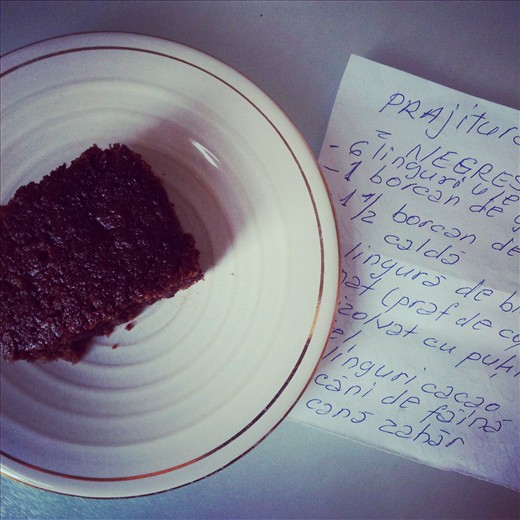 PRAjitura
= NEGRES
- 6 linguri ule
- 1 borcan de g
1 1/2 borcan de
caldă
lingură de bi
nat (praf de co
izolvat cu puțin
linguri cacao
căni de făină
cană zahăr